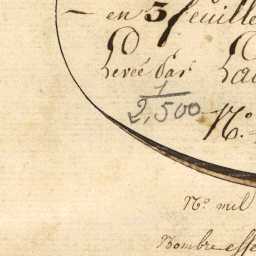 — en 3 feuille
Levée par
1
2,500
N°.
N°. mil
Nombre